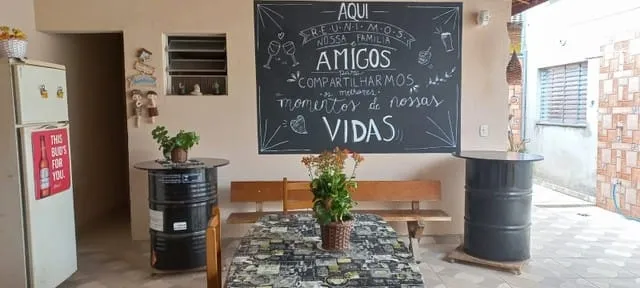 AQUI
REUNIMOS
NOSSA FAMILIA
E
AMIGOS
para
COMPARTILHARMOS
os melhores
momentos de nossas
VIDAS
THIS
BUD'S
FOR
YOU.